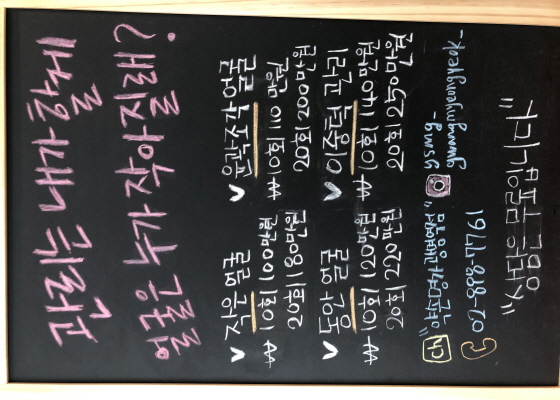 관리는 내가 할게
얼굴은 누가 작아질래?
✓ 작은 얼굴
₩ 10회 100만원
20회 180만원
✓ 윤곽조각 얼굴
₩ 10회 110만원
20회 200만원
✓ 동안 얼굴
₩ 10회 120만원
20회 220만원
✓ 이중턱 관리
₩ 10회 140만원
20회 250만원
ch "약손명가 광명역점"
ysmg_
gwangmyeongyeok_